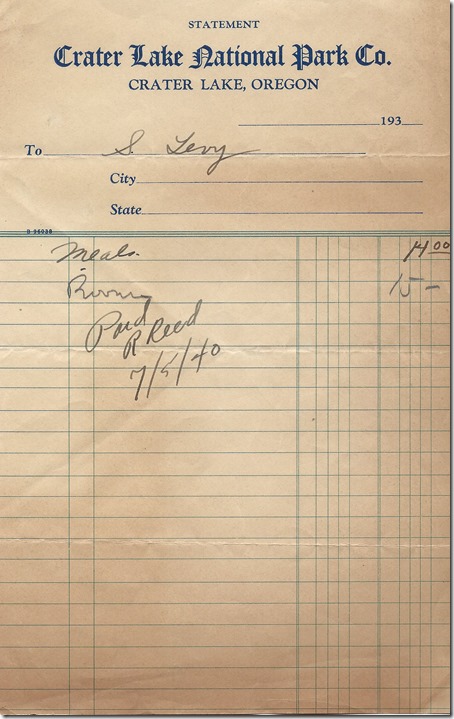 STATEMENT
Crater Lake National Park Co.
CRATER LAKE, OREGON
193
To S. Levy
City
State
B 96038
Meals 14 00
Room 15 –
Paid
R Reed
7/5/40